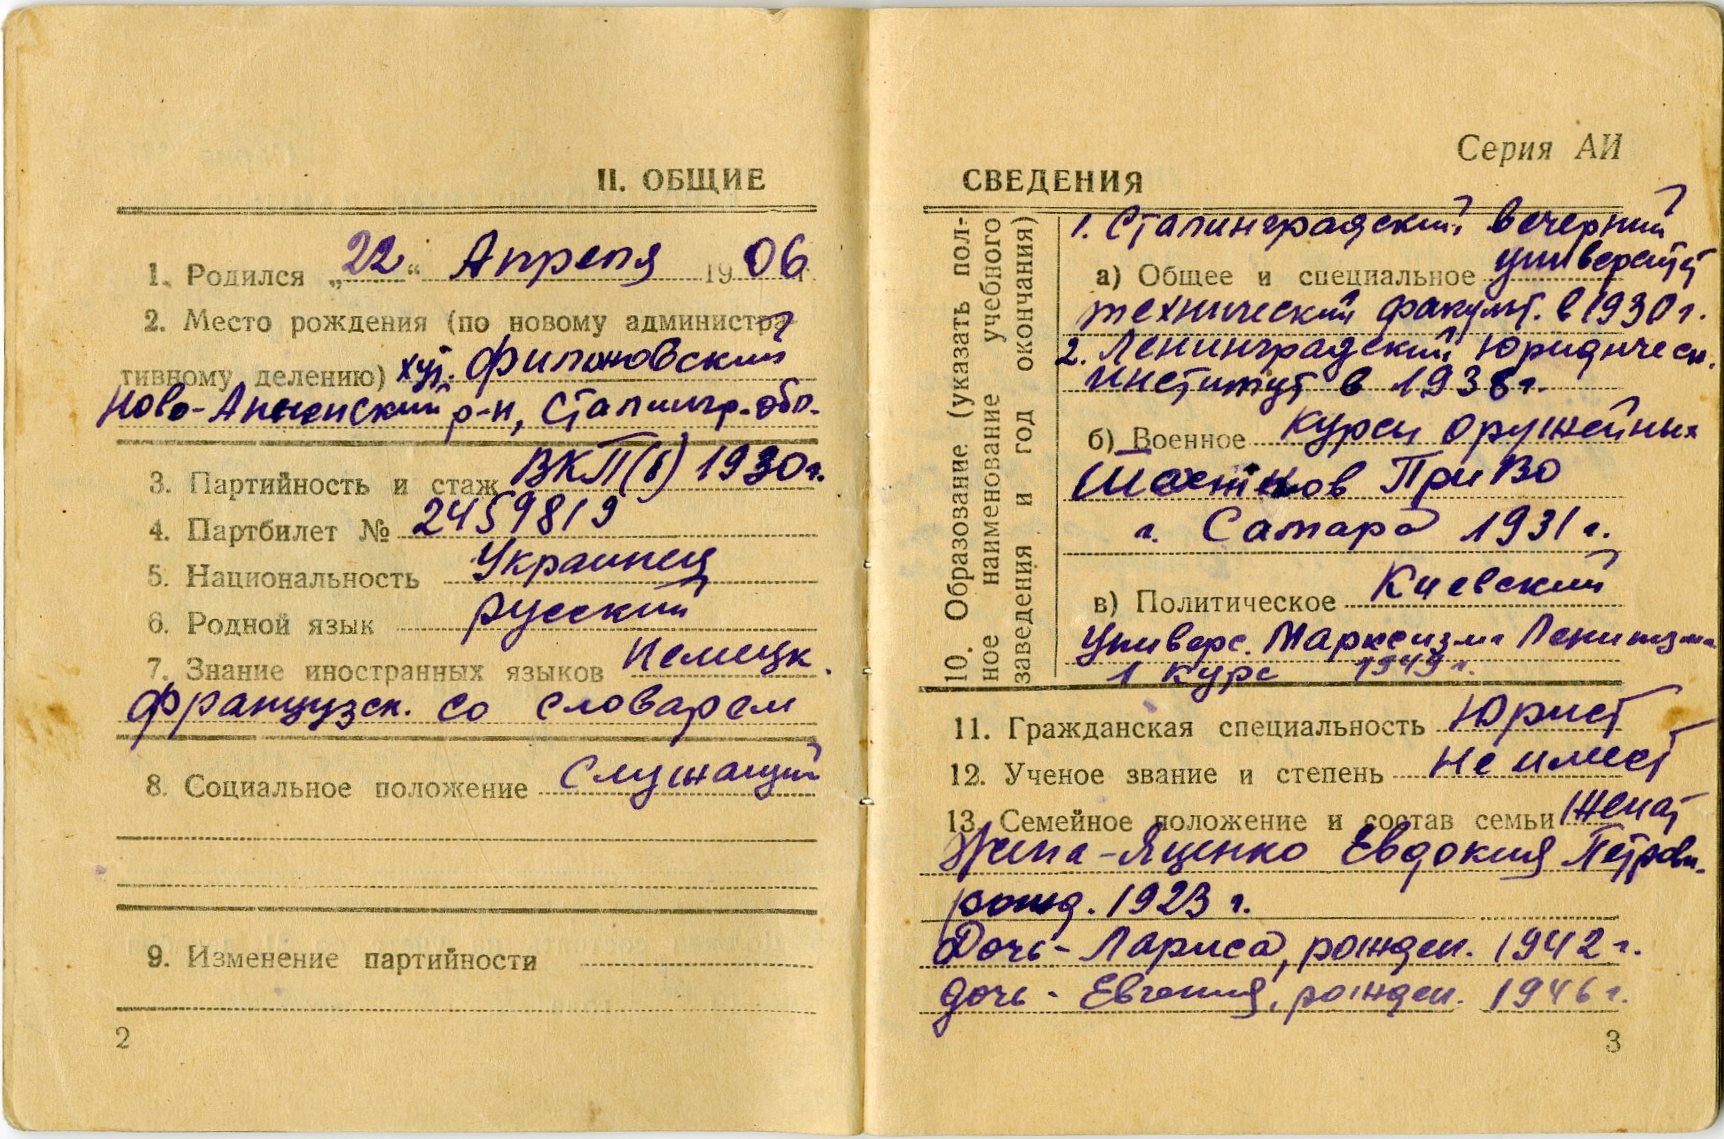 II. ОБЩИЕ
1. Родился „22“ Апреля 1906 г.
2. Место рождения (по новому администра-
тивному делению) хут. Филоновский
Ново-Анненский р-н, Сталингр. обл.
3. Партийность и стаж ВКП(б) 1930 г.
4. Партбилет № 2459819
5. Национальность Украинец
6. Родной язык русский
7. Знание иностранных языков Немецк.
французск. со словарем
8. Социальное положение Служащий
9. Изменение партийности
2
Серия АИ
СВЕДЕНИЯ
10. Образование (указать пол-
ное наименование учебного
заведения и год окончания)
1. Сталинградский вечерний
а) Общее и специальное университет
технический факульт. в 1930 г.
2. Ленинградский Юридическ.
институт в 1938 г.
б) Военное Курсы оружейных
ПриВО
г. Самара 1931 г.
в) Политическое Киевский
Универс. Марксизма Ленинизма
1 курс 1949 г.
11. Гражданская специальность Юрист
12. Ученое звание и степень Не имеет
13. Семейное положение и состав семьи Женат
Жена - Яценко Евдокия Петровн.
рожд. 1923 г.
Дочь - Лариса, рожден. 1942 г.
дочь - Евгения, рожден. 1946 г.
3